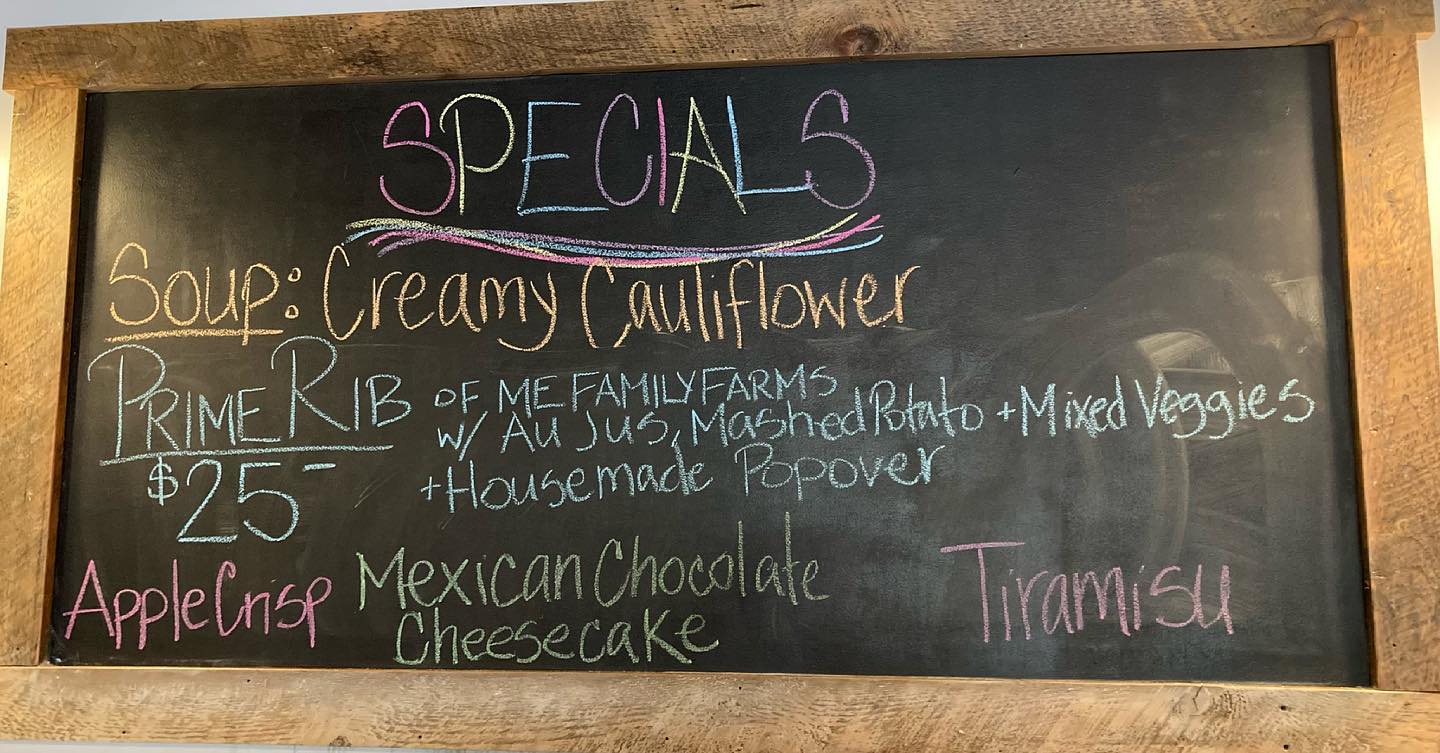 SPECIALS
Soup: Creamy Cauliflower
PRIME RIB OF ME FAMILY FARMS
W/ AU JUS, Mashed Potato + Mixed Veggies
$25- + Housemade Popover
Apple Crisp
Mexican Chocolate
Cheesecake
Tiramisu